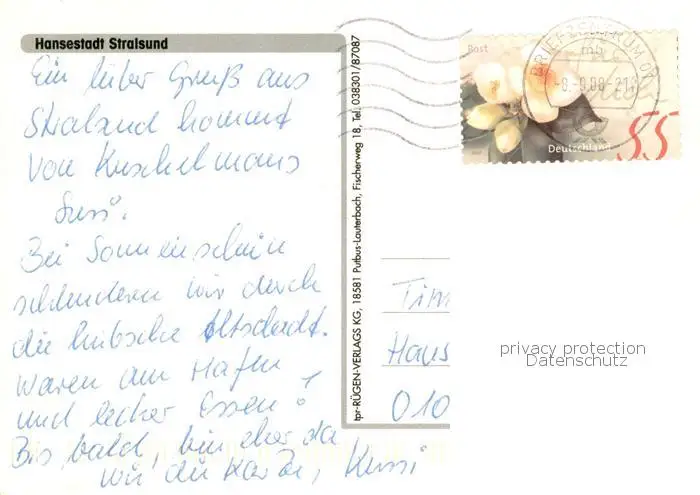 Hansestadt Stralsund
Ein lieber Gruß aus
Stralsund kommt
von Kuschelmaus
Susi.
Bei Sonnenschein
schlendern wir durch
die hübsche Altstadt.
Waren am Hafen
und lecker Essen!
Bis bald, bin eher da
wie die Karte, Kussi
tpr-RÜGEN-VERLAGS KG, 18581 Putbus-Lauterbach, Fischerweg 18, Tel. 038301/87087
Post
Deutschland
55
BRIEFZENTRUM
mb
21
Tim
Haus
010
privacy protection
Datenschutz